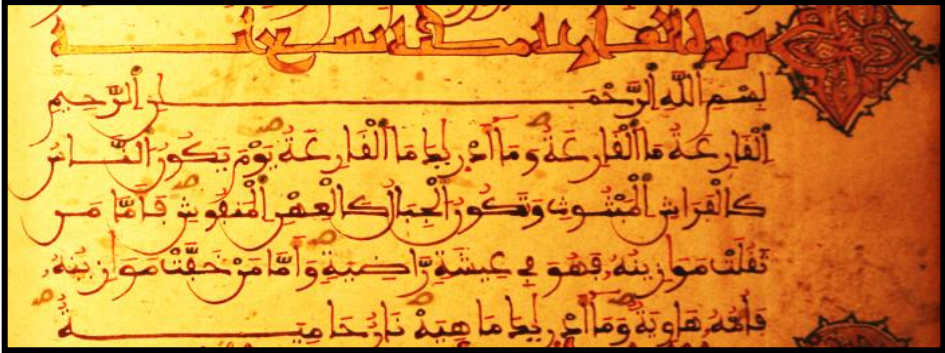 سورة القارعة مكية تسع
بِسْمِ اللَّهِ الرَّحْمَنِ الرَّحِيمِ
الْقَارِعَةُ مَا الْقَارِعَةُ وَمَا أَدْرِيكَ مَا الْقَارِعَةُ يَوْمَ يَكُونُ النَّاسُ
كَالْفَرَاشِ الْمَبْثُوثِ وَتَكُونُ الْجِبَالُ كَالْعِهْنِ الْمَنْفُوشِ فَأَمَّا مَن
ثَقُلَتْ مَوَازِينُهُ فَهُوَ فِي عِيشَةٍ رَّاضِيَةٍ وَأَمَّا مَنْ خَفَّتْ مَوَازِينُهُ
فَأُمُّهُ هَاوِيَةٌ وَمَا أَدْرِيكَ مَا هِيَهْ نَارٌ حَامِيَةٌ